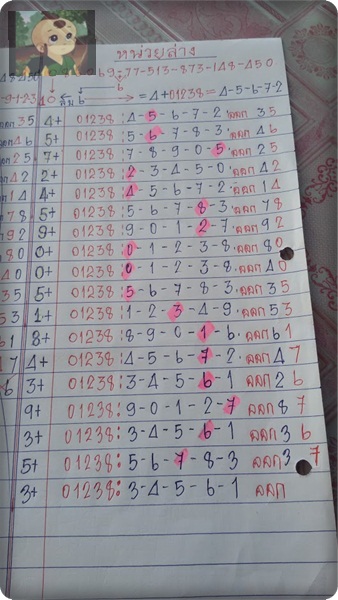 หน่วยล่าง
69-77-513-873-148-450
= 4+01238 = 4-5-6-7-2
35 4+ 01238:4-5-6-7-2. ออก 35
46 5+ 01238:5-6-7-8-3. ออก 46
25 7+ 01238:7-8-9-0-5. ออก 25
42 2+ 01238:2-3-4-5-0. ออก 42
14 4+ 01238:4-5-6-7-2. ออก 14
78 5+ 01238:5-6-7-8-3. ออก 78
92 9+ 01238:9-0-1-2-7. ออก 92
80 0+ 01238:0-1-2-3-8. ออก 80
40 0+ 01238:0-1-2-3-8. ออก 40
35 5+ 01238:5-6-7-8-3. ออก 35
53 1+ 01238:1-2-3-4-9. ออก 53
61 8+ 01238:8-9-0-1-6. ออก 61
47 4+ 01238:4-5-6-7-2. ออก 47
6 3+ 01238:3-4-5-6-1 ออก 26
9+ 01238:9-0-1-2-7 ออก 87
3+ 01238:3-4-5-6-1 ออก 36
5+ 01238:5-6-7-8-3 ออก 37
3+ 01238:3-4-5-6-1 ออก